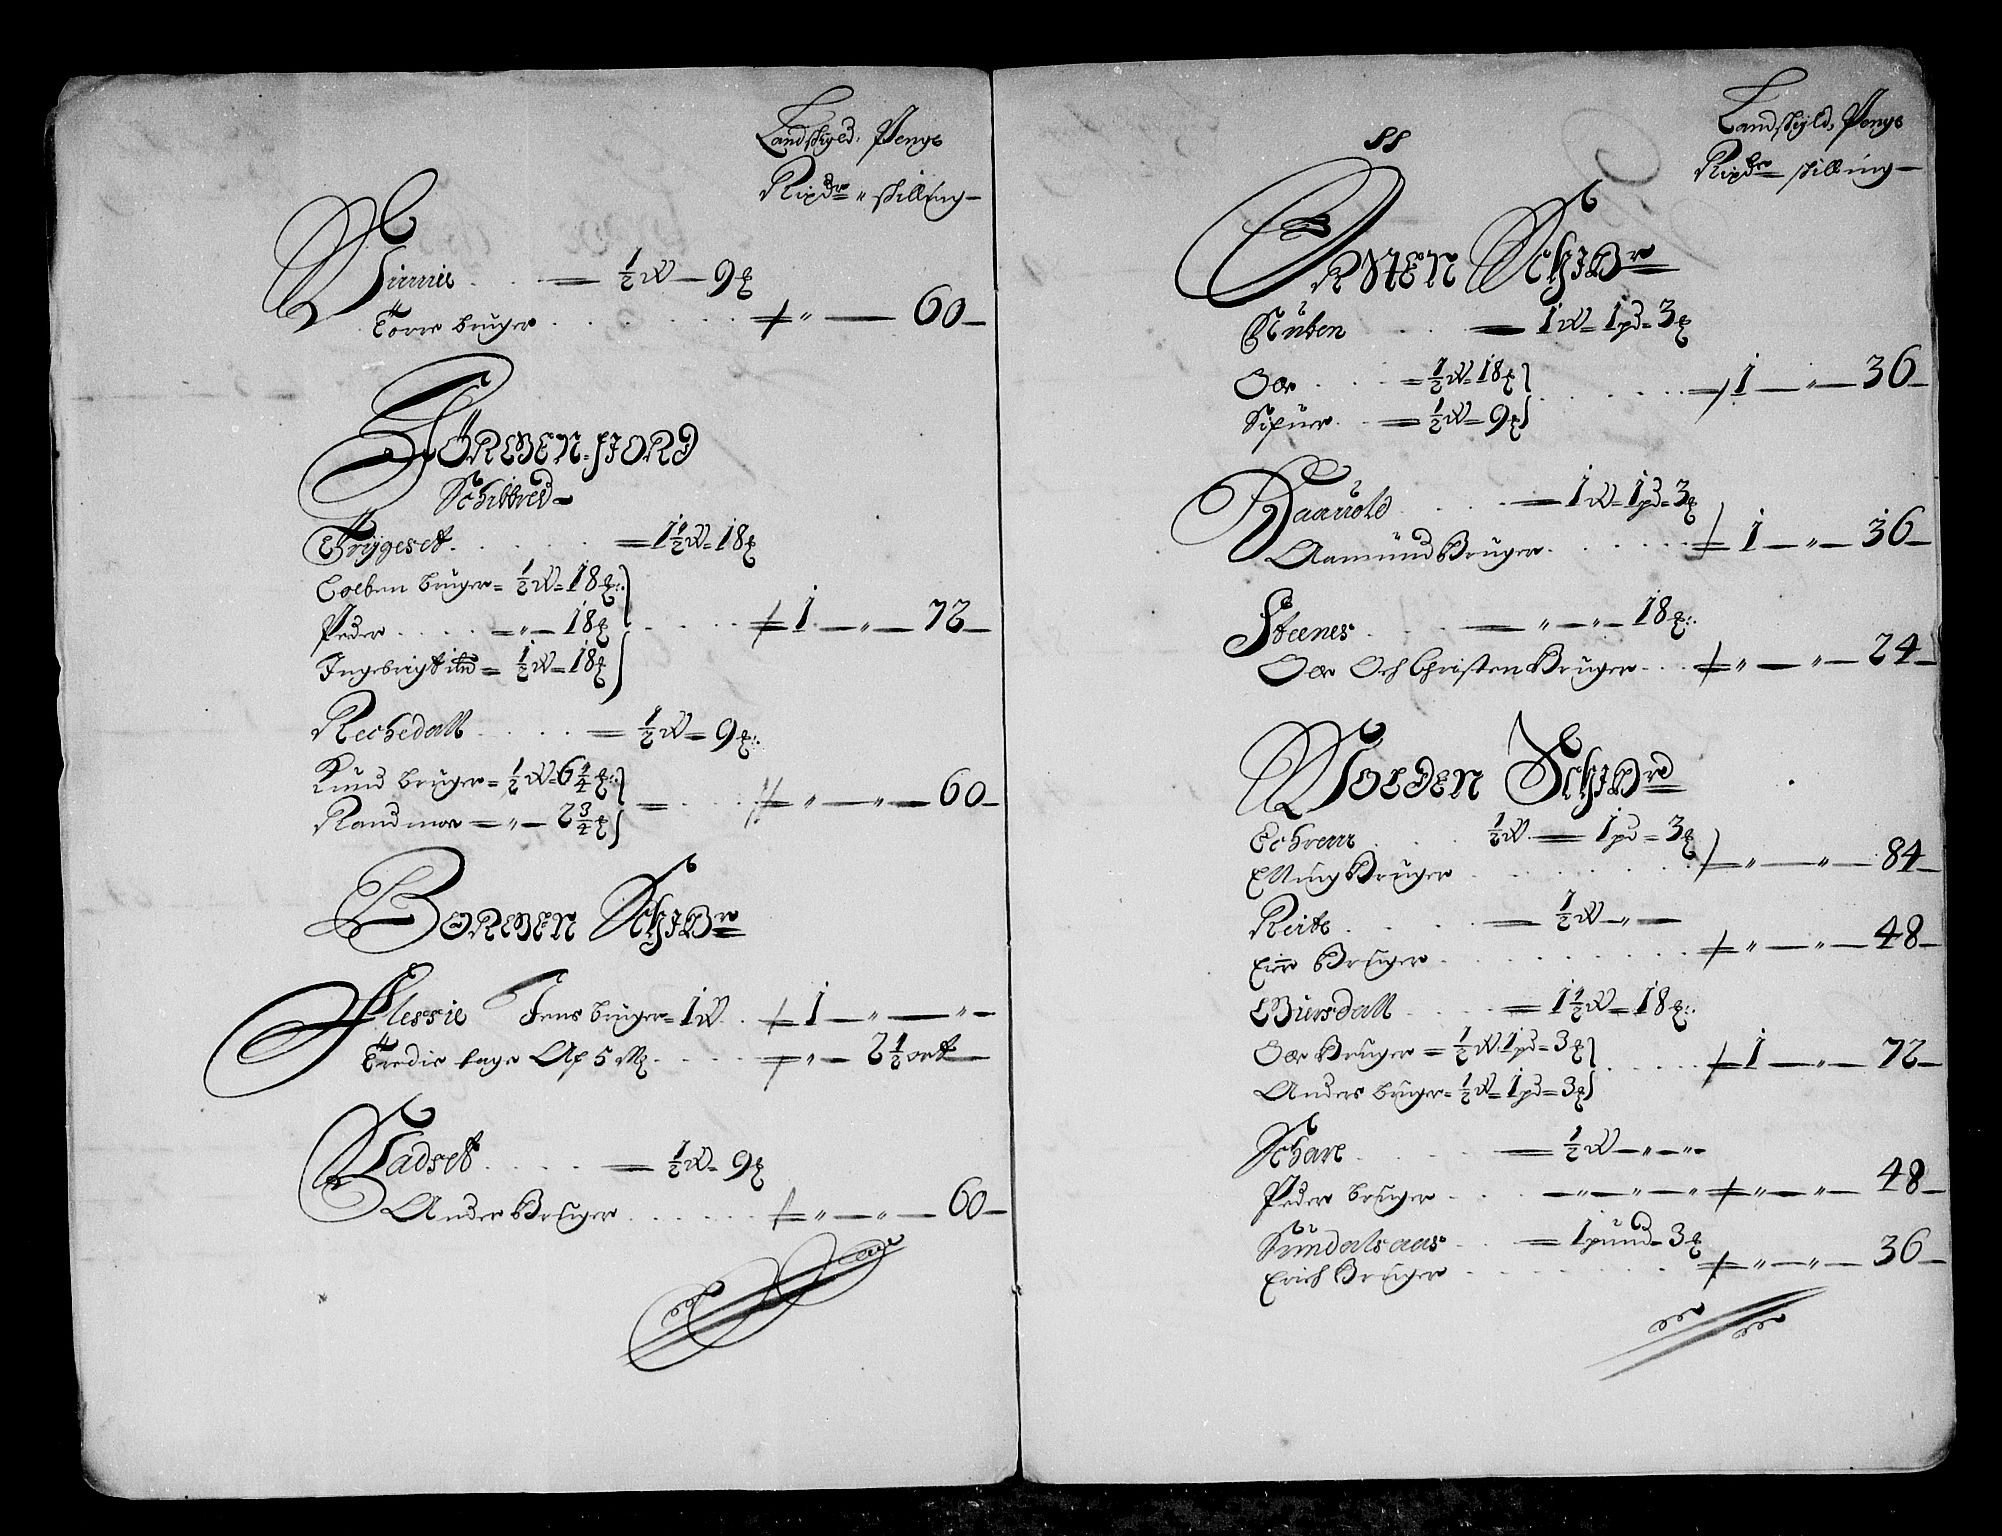 Landskyld. Penge
Rixdr " skilling –
Vinnie . . . = ½ W – 9 ℔
Torre bruger . . . . . " — 60 –
Körven fiord
Schibbred –
Trygeset . . . . . = 1½ W = 18 ℔
Colben bruger = ½ W = 18 ℔ :
Peder . . . . = " – 18 ℔ . . . . 1 – " – 72 –
Ingebrigt = ½ W = 18 ℔
Rechedall . . . . = ½ W = 9 ℔ :
Knud bruger = ½ W = 6¼ ℔ :
Rand = " – 2¾ ℔ = . . . " – " – 60 –
Borven Schibr
Flessie Jens bruger = 1 W . . 1 – " – " –
Tredie tage Af 5 M . . . . " – 2½ ort –
Nadset . . . . = ½ W = 9 ℔
Ander Bruger . . . . . " – " – 60 –
Landskyld, Penge
Rixdr skilling –
Orsten Schibr
Nuben . . . – 1 W = 1 pd = 3 ℔
Ole . . . . = ½ W = 18 ℔ . . . . 1 – " – 36 –
Sifuer . . = ½ W = 9 ℔
Haauold . . . . – 1 W = 1 pd = 3 ℔
Aamund Bruger . . . . . 1 – " – 36 –
Steenes . . . . = " – " – 18 ℔ :
Ole Och Christen Bruger . . . " – " – 24 –
Volden Schibrd
Echrem . . . ½ W = 1 pd = 3 ℔
Elling Bruger . . . . . . " – " – 84 –
Reite . . . . = ½ W – " –
Bruger . . . . . . . " – " – 48 –
Biersdall . . . . = 1½ W = 18 ℔ :
Ole Bruger = ½ W 1 pd = 3 ℔ . . . . 1 – " – 72 –
Anders bruger = ½ W = 1 pd = 3 ℔
Schare . . . . = ½ W – " – " –
Peder bruger . . . – " – " – " " – " – 48 –
Sundalsaas . . . = 1 pund = 3 ℔
Erich Bruger . . . . . . " – " – 36 –